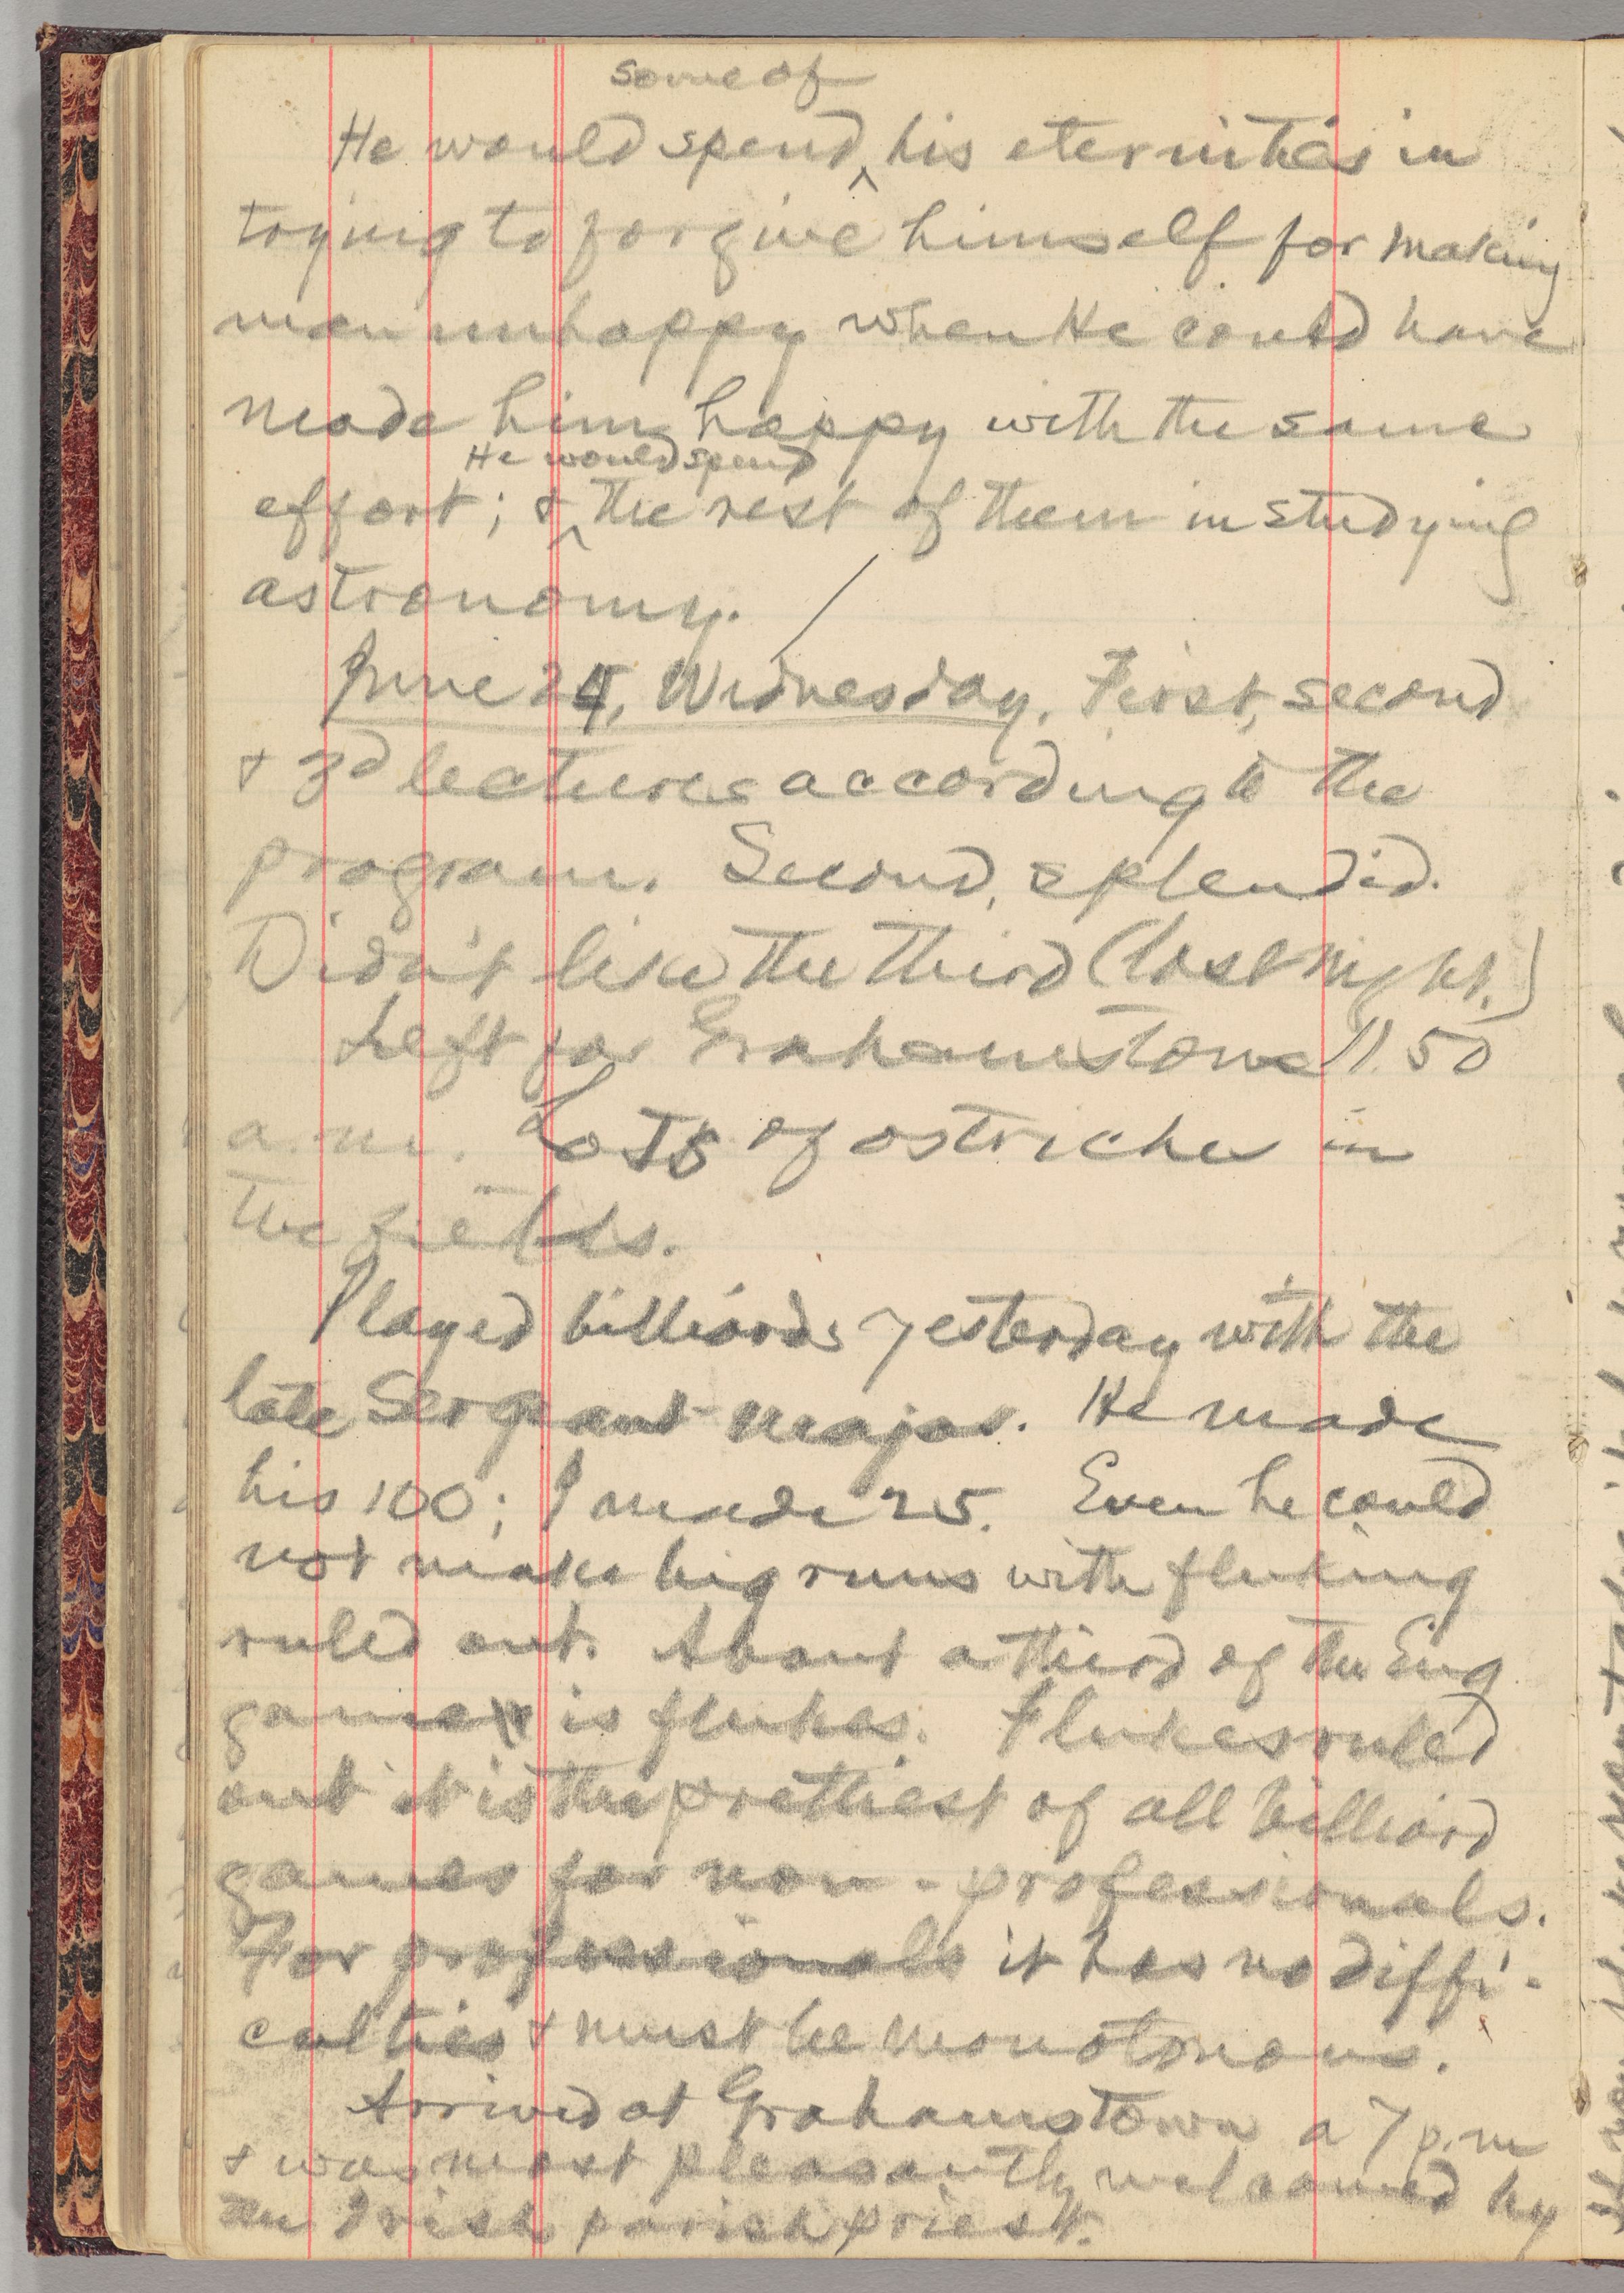 some of
He would spend ‸ his eternities in
trying to forgive himself for making
man unhappy when He could have
made him happy with the same
He would spend
effort; & ‸ the rest of them in studying
astronomy.
June 24, Wednesday. First, second
& 3d lectures according to the
program. Second, splendid.
Didn't like the third (last night.)
Left for Grahamstown 11.50
a.m. Lots of ostriches in
the fields.
Played billiards yesterday with the
late Sergeant-Major. He made
his 100; I made 25. Even he could
not make big runs with fluking
ruled out. About a third of the Eng
game is flukes. Flukes ruled
out it is the prettiest of all billiard
games for non-professionals.
For professionals it has no diffi-
culties & must be monotonous.
Arrived at Grahamstown a 7 p.m
& was most pleasantly welcomed by
an Irish parish priest.